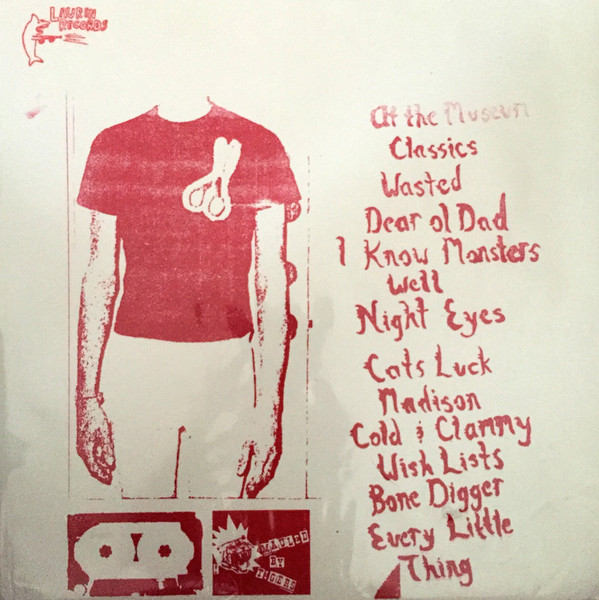 LAURIN
RECORDS
At the Museum
Classics
Wasted
Dear ol Dad
I Know Monsters
Well
Night Eyes
Cats Luck
Madison
Cold & Clammy
Wish Lists
Bone Digger
Every Little
Thing
CRADLED
BY
TIGERS